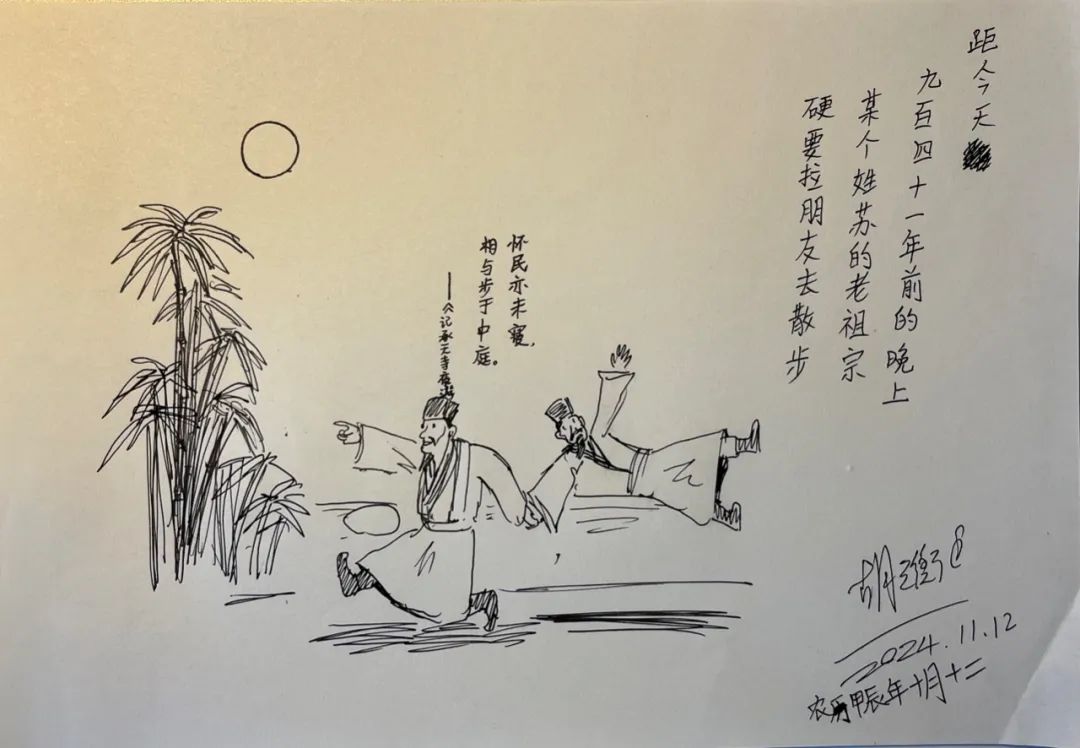 距今天
九百四十一年前的晚上
某个姓苏的老祖宗
硬要拉朋友去散步
怀民亦未寝,
相与步于中庭。
——《记承天寺夜游
2024.11.12
农历甲辰年十月十二